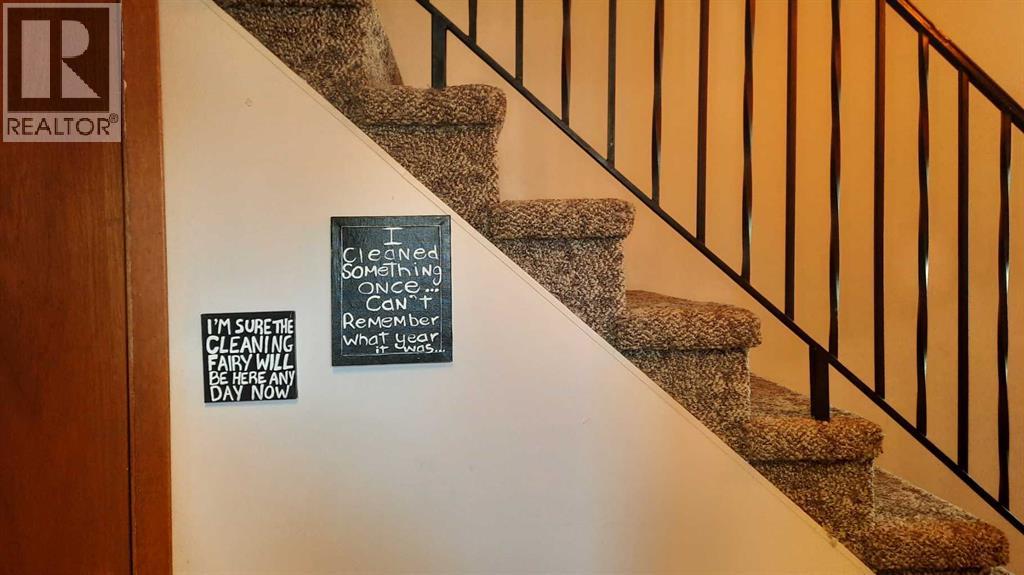 REALTOR®
I
CLEANED
SOMETHING
ONCE...
CAN'T
REMEMBER
WHAT YEAR
IT WAS...
I'M SURE THE
CLEANING
FAIRY WILL
BE HERE ANY
DAY NOW